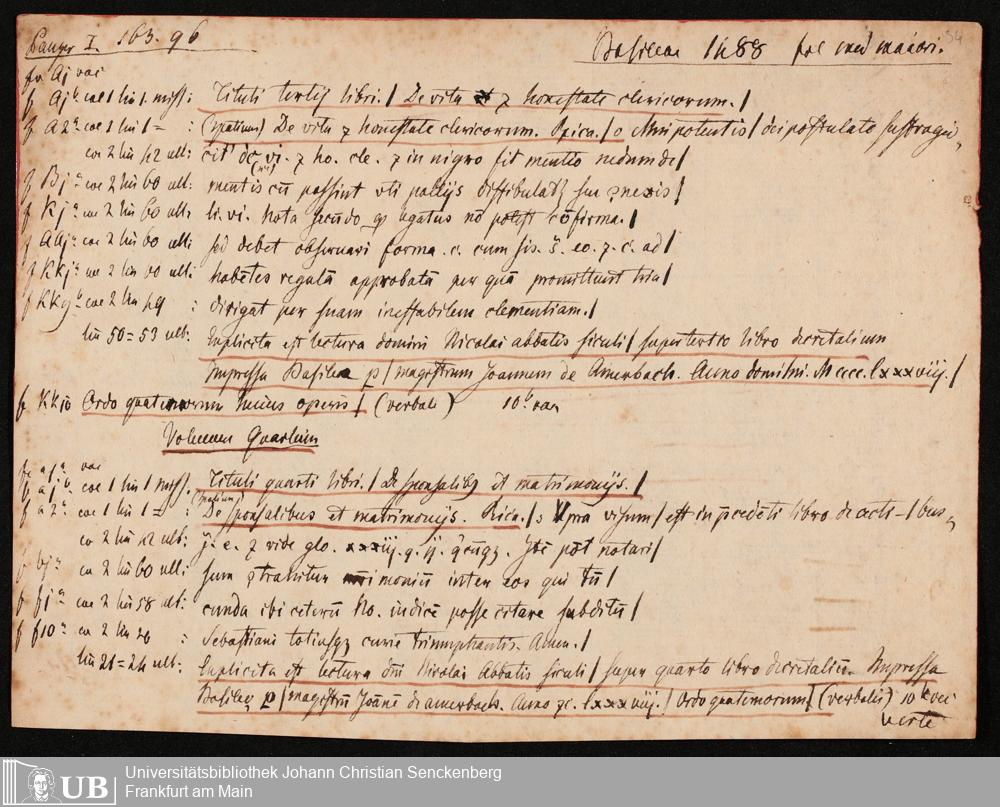 Panzer I. 163. 96
Basileae 1488 fol med maiori. 54
fo Aj vac
f Aj b col 1 lin 1. miss: Tituli tertij libri. / De vita et honestate clericorum. /
f A2 a col 1 lin 1 = : (spatium) De vita et honestate clericorum. Rrica. / o Mnipotentis / dei postulato suffragio
col 2 lin 42 ult: de vi. et ho. cle. et in nigro fit mentio nedum de /
f Bj a col 2 lin 60 ult: mentis cū possint vti pallijs diffibulat
f Kj a col 2 lin 60 ult: li. vi. Nota secūdo qp legatus nō potest cōfirma. /
f AAj a col 2 lin 60 ult: sed debet obseruari forma. c. cum sis. eo. et c. ad /
f KKj a col 2 lin 60 ult: habētes regulā approbatā per quā promittunt tria /
f KK9 b col 2 lin 49 : dirigat per suam ineffabilem clementiam. /
lin 50 = 53 ult. Explicita est lectura domini Nicolai abbatis siculi / super tertio libro decretalium
Impressa Basilee p / magistrum Joannem de Amerbach. Anno domini. M cccc. lxxxviij. /
f KK10 Ordo quaternorum huius operis / (verbali) 10 b vac
Volumen Quartum
fo aj a vac
f aj b col 1 lin 1 miss. Tituli quarti libri. / De sponsalibus et matrimonijs. /
f a2 a col 1 lin 1 = : (spatium) De sponsalibus et matrimonijs. Rica. / pra visum / est in p̄cedēti libro de acti- / bus
co 2 lin 42 ult: ij. e. et vide glo. xxxij. q. ij. Itē pōt notari /
f bj a co 2 lin 60 ult: sum trahitur monium inter eos qui
f fj a col 2 lin 58 ult: cunda ibi ceterū No. iudicē posse citare subditū /
f f10 a co 2 lin 20 : Sebastiani totiusqz curie triumphantis. Amen. /
lin 21 = 24 ult: Explicita est lectura dnī Nicolai Abbatis siculi / super quarto libro decretaliū. Impressa
Basilee p / magistrū Joānē de amerbach. Anno lxxxviij. / Ordo quaternorum / (verbalis) 10 b vac
verte
Universitätsbibliothek Johann Christian Senckenberg
UB Frankfurt am Main